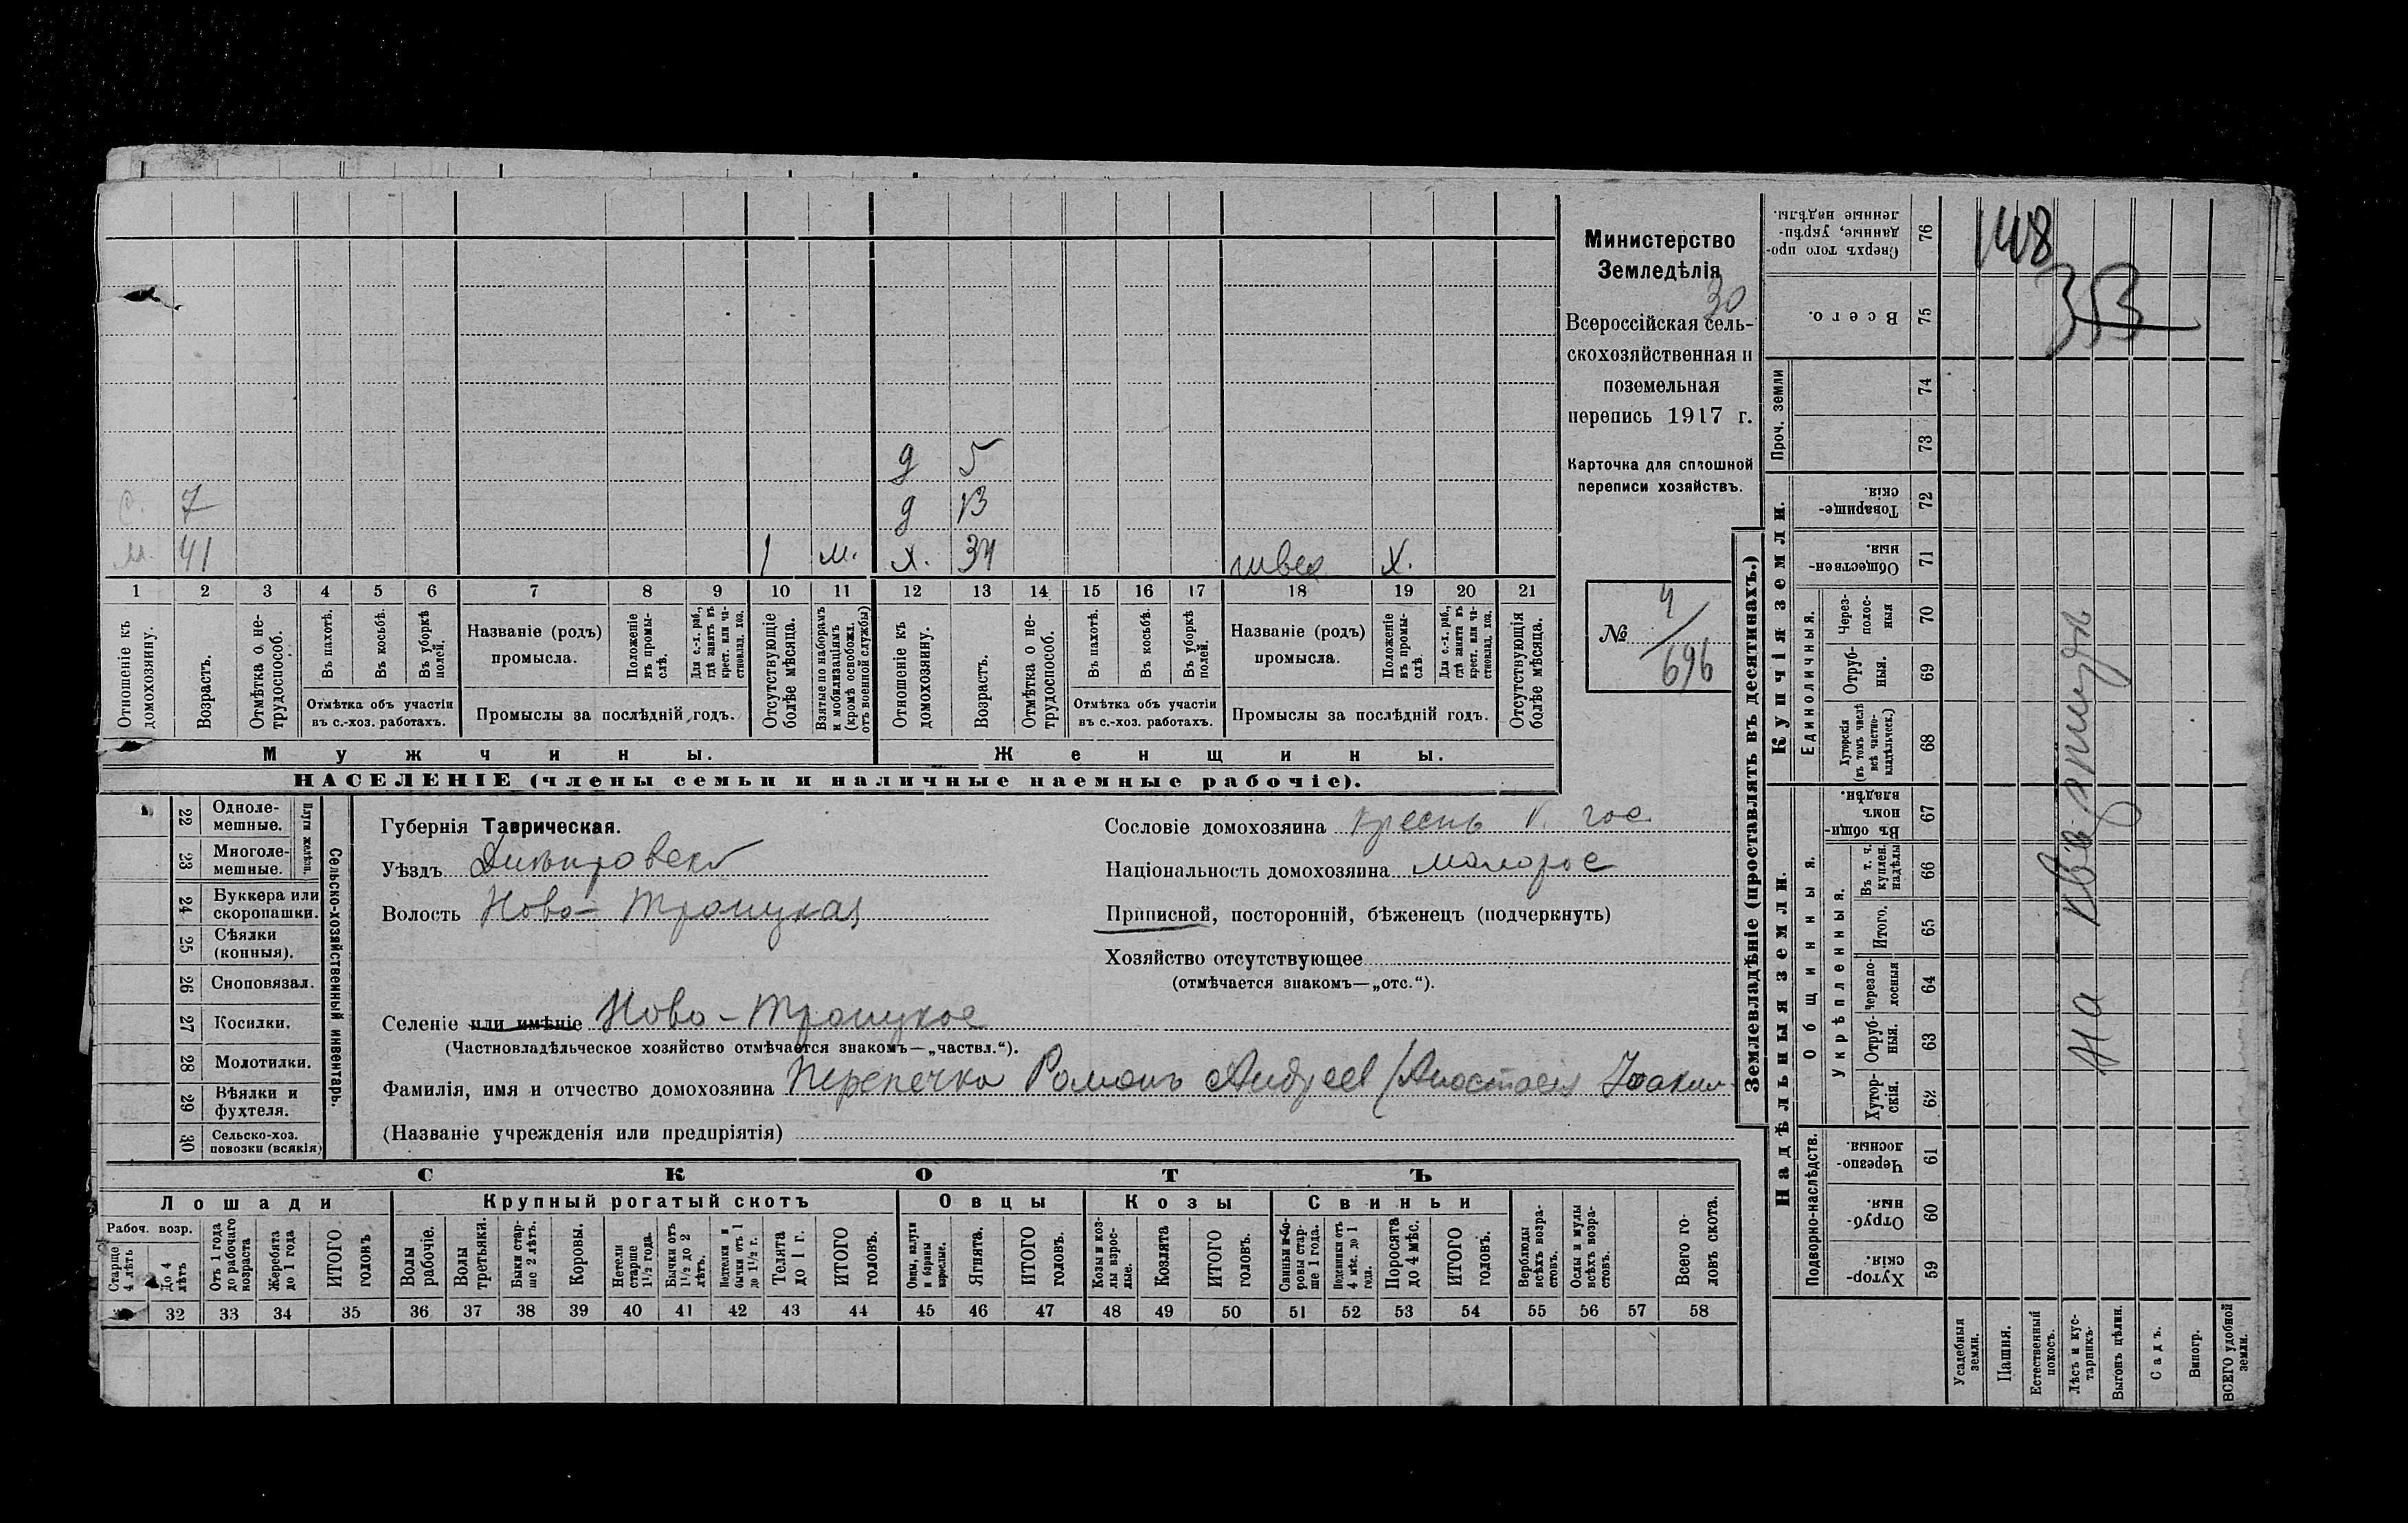 Министерство
Земледѣлія
30
Всероссійская сель-
скохозяйственная и
поземельная
перепись 1917 г.
Карточка для сплошной
переписи хозяйствъ.
№ 4/696
д 5
с. 7 д 13
м. 41 1 м. х. 34 швея х.
1 2 3 4 5 6 7 8 9 10 11 12 13 14 15 16 17 18 19 20 21
Отношеніе къ домохозяину.
Возрастъ.
Отмѣтка о не-трудоспособ.
Въ пахотѣ.
Въ косьбѣ.
Въ уборкѣ полей.
Отмѣтка объ участіи
въ с.-хоз. работахъ.
Названіе (родъ)
промысла.
Положеніе въ промы-слѣ.
Для с.-х. раб., гдѣ занятъ въ крест. или ча-стновлад. хоз.
Промыслы за послѣдній годъ.
Отсутствующіе болѣе мѣсяца.
Взятые по наборамъ и мобилизаціямъ (кромѣ освобожд. отъ военной службы)
Отношеніе къ домохозяину.
Возрастъ.
Отмѣтка о не-трудоспособ.
Въ пахотѣ.
Въ косьбѣ.
Въ уборкѣ полей.
Отмѣтка объ участіи
въ с.-хоз. работахъ.
Названіе (родъ)
промысла.
Положеніе въ промы-слѣ.
Для с.-х. раб., гдѣ занята въ крест. или ча-стновлад. хоз.
Промыслы за послѣдній годъ.
Отсутствующія болѣе мѣсяца.
Мужчины. Женщины.
НАСЕЛЕНІЕ (члены семьи и наличные наемные рабочіе).
22 Одноле-мешные.
23 Многоле-мешные.
Плуги желѣзн.
24 Буккера или скоропашки.
25 Сѣялки (конныя).
26 Сноповязал.
27 Косилки.
28 Молотилки.
29 Вѣялки и фухтеля.
30 Сельско-хоз. повозки (всякія)
Сельско-хозяйственный инвентарь.
Губернія Таврическая.
Уѣздъ Днѣпровскій
Волость Ново-Троицкая
Сословіе домохозяина крестъ
Національность домохозяина малорос
Приписной, посторонній, бѣженецъ (подчеркнуть)
Хозяйство отсутствующее
(отмѣчается знакомъ—„отс.“).
Селеніе или имѣніе Ново-Троицкое
(Частновладѣльческое хозяйство отмѣчается знакомъ—„частвл.“).
Фамилія, имя и отчество домохозяина Перепечка Романъ Андреев (Анастасія Іоаким
(Названіе учрежденія или предпріятія)
СКОТЪ
Лошади Крупный рогатый скотъ Овцы Козы Свиньи
Рабоч. возр.
Старше 4 лѣтъ
До 4 лѣтъ
Отъ 1 года до рабочаго возраста
Жеребята до 1 года
ИТОГО головъ
Волы рабочіе.
Волы третьяки.
Быки стар-ше 2 лѣтъ.
Коровы.
Нетели старше 1½ года.
Бычки отъ 1½ до 2 лѣтъ.
Подтелки и бычки отъ 1 до 1½ г.
Телята до 1 г.
ИТОГО головъ.
Овцы, валухи и бараны взрослые.
Ягнята.
ИТОГО головъ.
Козы и коз-лы взрос-лые.
Козлята
ИТОГО головъ.
Свиньи и бо-ровы стар-ше 1 года.
Подсвинки отъ 4 мѣс. до 1 года.
Поросята до 4 мѣс.
ИТОГО головъ.
Верблюды всѣхъ возра-стовъ.
Ослы и мулы всѣхъ возра-стовъ.
Всего го-ловъ скота.
32 33 34 35 36 37 38 39 40 41 42 43 44 45 46 47 48 49 50 51 52 53 54 55 56 57 58
Землевладѣніе (проставлять въ десятинахъ.)
Надѣльныя земли. Купчія земли.
Подворно-наслѣдств.
Общинныя.
Укрѣпленныя.
Единоличныя.
Проч. земли
Хутор-скія. 59
Отруб-ныя. 60
Черезпо-лосныя. 61
Хутор-скія. 62
Отруб-ныя. 63
Черезпо-лосныя 64
Итого. 65
Въ т. ч. куплен. надѣлы 66
Въ общин-номъ владѣн. 67
Хуторскія (въ томъ числѣ всѣ частно-владѣльческ.) 68
Отруб-ныя. 69
Через-полос-ныя 70
Обществен-ныя. 71
Товарище-скія. 72
73
74
Всего. 75
Сверхъ того про-данные, укрѣп-ленные надѣлы. 76
Усадебныя земли.
Пашня.
Естественный покосъ.
Лѣсъ и кус-тарникъ.
Выгонъ цѣлин.
Садъ.
Виногр.
ВСЕГО удобной земли.
148
353
На